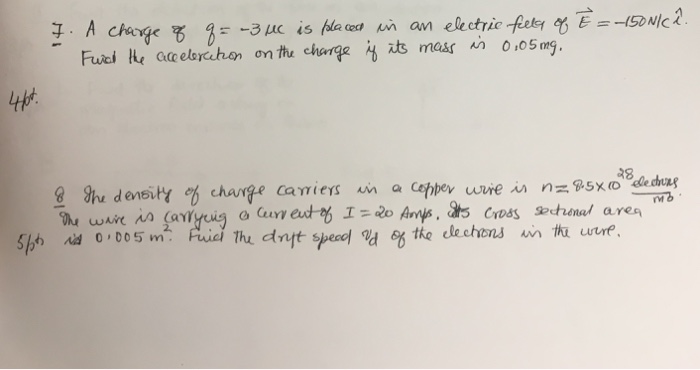 7. A charge of q = -3 μc is placed in an electric field of E⃗ = -150 N/C î.
Find the acceleration on the charge if its mass is 0.05 mg.
4pt.
8 The density of charge carriers in a copper wire is n = 8.5×10²⁸ electrons/m³.
The wire is carrying a current of I = 20 Amps. Its cross sectional area
5pts is 0.005 m². Find the drift speed vd of the electrons in the wire.